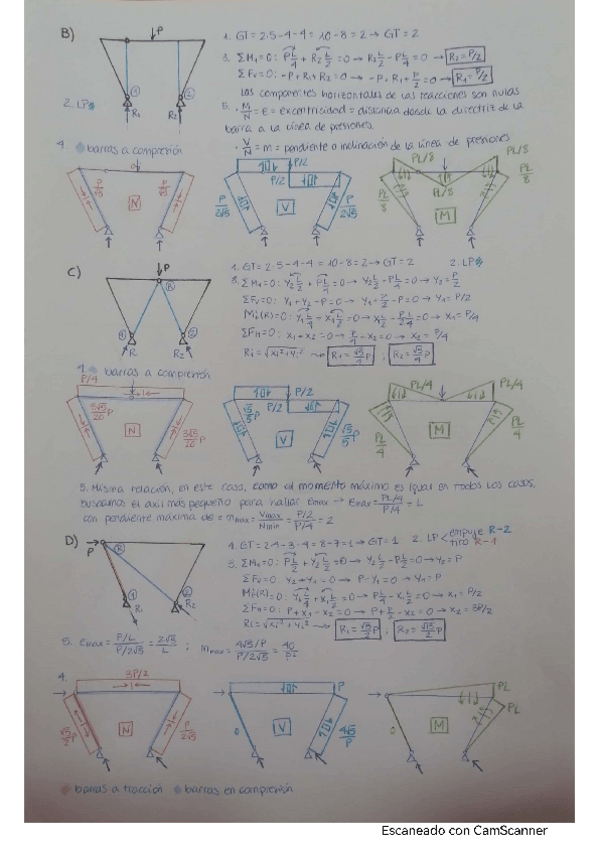 B)
P
1. GT = 2·5-4-4 = 10-8 = 2 → GT = 2
3. ΣM₁=0: PL/4 + R₂L/2 = 0 → R₂L/2 - PL/4 = 0 → R₂ = P/2
ΣFv=0: -P+R₁+R₂ = 0 → -P+R₁+P/2 = 0 → R₁ = P/2
Las componentes horizontales de las reacciones son nulas
2. LPs
R₁ R₂
5. · M/N = e = excentricidad = distancia desde la directriz de la
barra a la línea de presiones.
· V/N = m = pendiente o inclinación de la línea de presiones
4. barras a compresión
P/√5 N P/√5
P/2 P/2 P/2√5 V P/2√5
PL/8 PL/8 PL/8 PL/8 M
C)
P
R
1. GT = 2·5-4-4 = 10-8 = 2 → GT = 2 2. LPs
3. ΣM₁=0: Y₂L/2 + PL/4 = 0 → Y₂L/2 - PL/4 = 0 → Y₂ = P/2
ΣFv=0: Y₁+Y₂-P = 0 → Y₁+P/2-P = 0 → Y₁ = P/2
ΣFH=0: X₁+X₂ = 0 → P/4 - X₂ = 0 → X₂ = P/4
Ri = √Xi²+Yi² → R₁ = √5/4 P ; R₂ = √5/4 P
R₁ R₂
4. barras a compresión
P/4
3√5/20 P N 3√5/20 P
P/2 P/2 √5/5 P V √5/5 P
PL/4 PL/4 PL/4 PL/4 M
5. Misma relación, en este caso, como el momento máximo es igual en todos los casos,
buscamos el axil más pequeño para hallar emax → emax = PL/4 / P/4 = L
con pendiente máxima de = mmax = Vmax/Nmin = P/2 / P/4 = 2
D)
P
R
1. GT = 2·4-3-4 = 8-7 = 1 → GT = 1 2. LP empuje R-2
tiro R-1
3. ΣM₁=0: PL/2 + Y₂L/2 = 0 → Y₂L/2 - PL/2 = 0 → Y₂ = P
ΣFv=0 Y₂+Y₁ = 0 → P-Y₁ = 0 → Y₁ = P
ΣFH=0: P+X₁-X₂ = 0 → P+P/2-X₂ = 0 → X₂ = 3P/2
Ri = √Xi²+Yi² → R₁ = √5/2 P ; R₂ = √13/2 P
R₁ R₂
5. emax = P/L / P/2√5 = 2√5/L ; mmax = 4√5/P / P/2√5 = 40/P²
4.
3P/2
√5/2 P N P/2√5
P 0 V 4√5/P
PL PL 0 M
barras a tracción barras en compresión
Escaneado con CamScanner